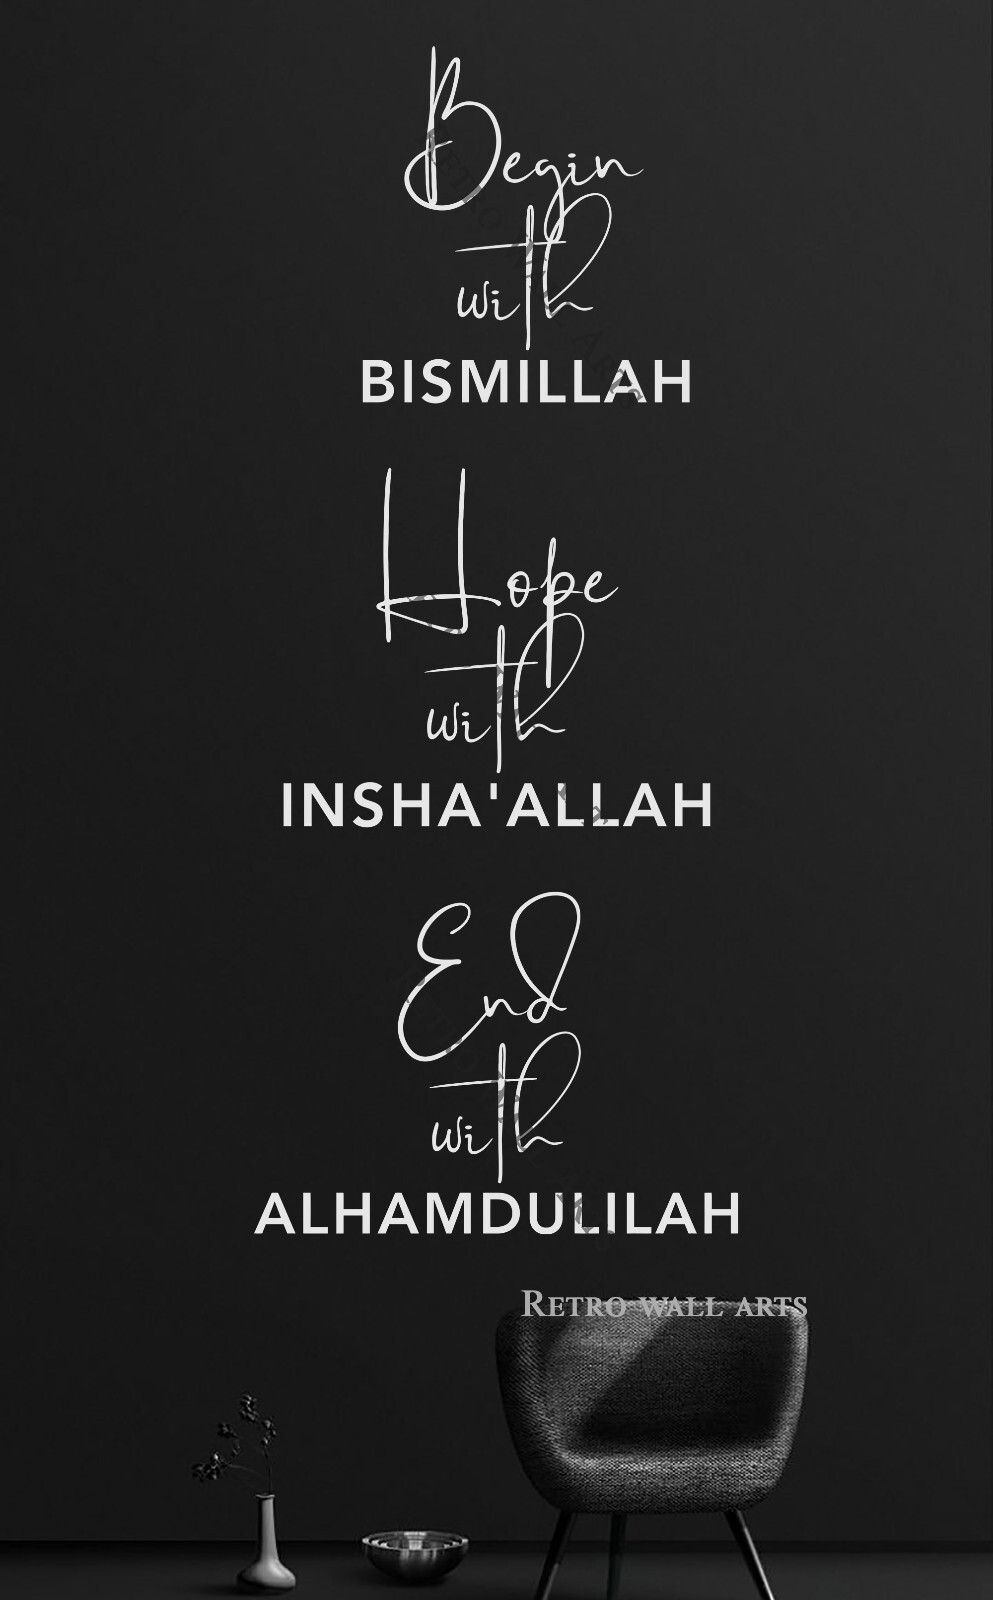 Begin
with
BISMILLAH
Hope
with
INSHA'ALLAH
End
with
ALHAMDULILAH
RETRO WALL ARTS